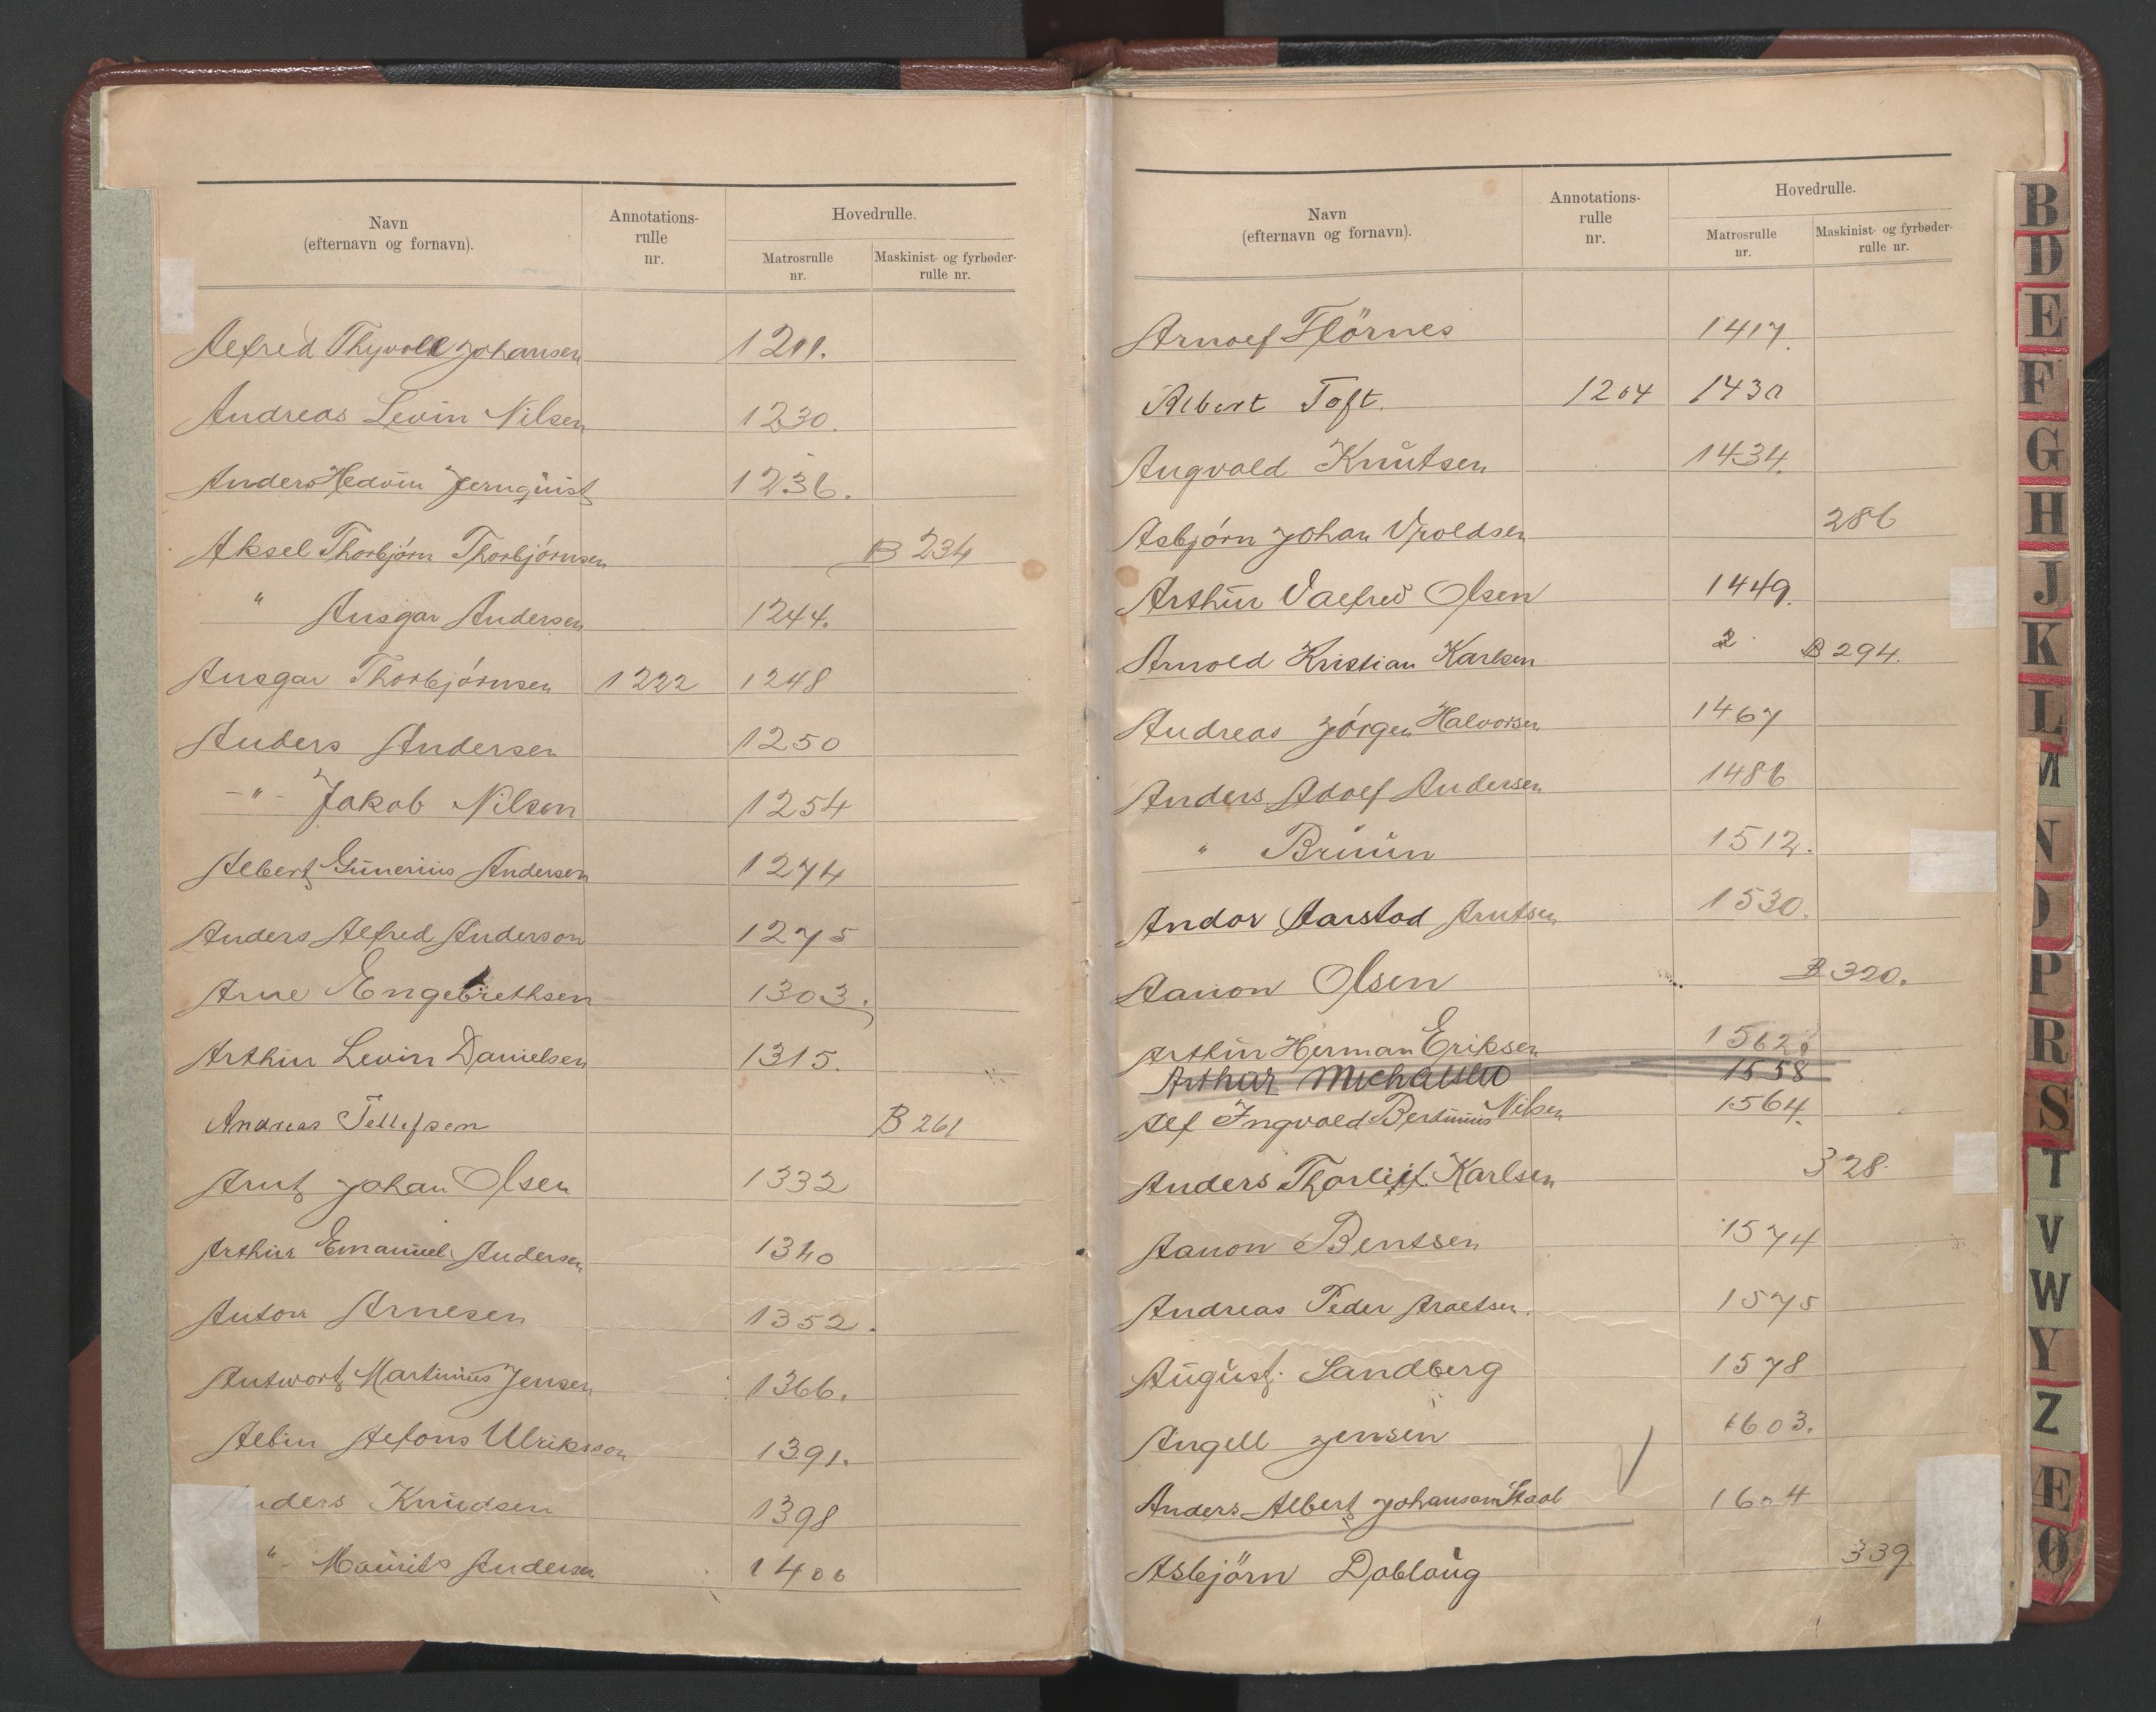 Navn
(efternavn og fornavn).
Annotations-
rulle
nr.
Hovedrulle.
Matrosrulle
nr.
Maskinist- og fyrbøder-
rulle nr.
Alfred Thyvold Johansen 1211.
Andreas Levin Nilsen 1230.
Anders Hedvin Jernquist 1236.
Aksel Thorbjørn Thorbjørnsen B 234
" Ansgar Andersen 1244.
Ansgar Thorbjørnsen 1222 1248
Anders Andersen 1250
-"- Jakob Nilsen 1254
Albert Gunerius Andersen 1274
Anders Alfred Anderson 1275
Arne Engebrethsen 1303.
Arthur Levin Danielsen 1315.
Andreas Tellefsen B 261
Arnt Johan Olsen 1332
Arthur Emanuel Andersen 1340
Anton Arnesen 1352.
Antwort Martinius Jensen 1366.
Albin Alfons Ulriksson 1391.
Anders Knudsen 1398
" Maurits Andersen 1400
Navn
(efternavn og fornavn).
Annotations-
rulle
nr.
Hovedrulle.
Matrosrulle
nr.
Maskinist- og fyrbøder-
rulle nr.
Arnolf Flörnes 1417.
Albert Toft. 1204 1430
Angvald Knutsen 1434.
Asbjørn Johan Vroldsen 286
Arthur Valfred Olsen 1449.
Arnold Kristian Karlsen 2 B 294.
Andreas Jörgen Halvorsen 1467
Anders Adolf Andersen 1486
" Bruun 1512.
Andor Aarstad Arntsen 1530.
Aanon Olsen B 320.
Arthur Herman Eriksen 1562
Arthur 1558
Alf Ingvald Bertinius Nilsen 1564.
Anders Thorleif Karlsen 328.
Aanon Bentsen 1574
Andreas Peder 1575
August Sandberg 1578
Angell Jensen 1603.
Anders Albert Johanson Staal 1604
Asbjörn Doblaug 339
B
D
E
F
G
H
J
K
L
M
N
O
P
R
S
T
V
W
Y
Z
Æ
Ø